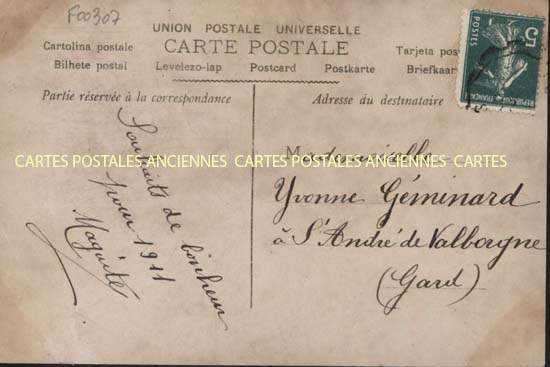 F00307
UNION POSTALE UNIVERSELLE
CARTE POSTALE
Cartolina postale
Tarjeta pos
Bilhete postal Levelezo-lap Postcard Postkarte Briefkaar
Partie réservée à la correspondance
Adresse du destinataire
5c
POSTES
REPUBLIQUE FRANÇAISE
Souhaits de bonheur
pour 1911
Mademoiselle
Yvonne Géminard
à St André de Valborgne
(Gard)
CARTES POSTALES ANCIENNES CARTES POSTALES ANCIENNES CARTES